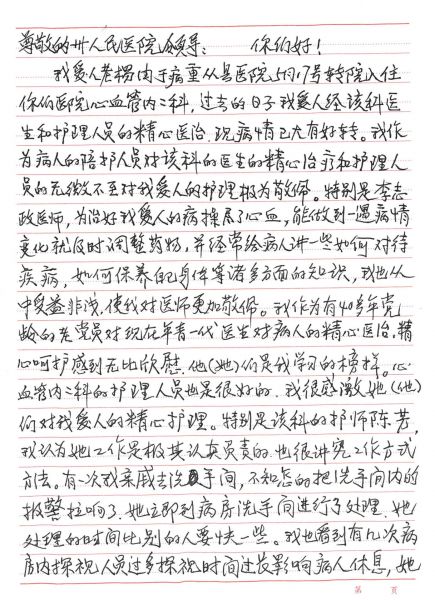 尊敬的州人民医院领导： 你们好！
我爱人老杨由于病重从县医院5月17号转院入住
你们医院心血管内二科，过去的日子我爱人经该科医
生和护理人员的精心医治，现病情已大有好转。我作
为病人的陪护人员对该科的医生的精心治疗和护理人
员的无微不至对我爱人的护理极为敬佩。特别是李志
政医师，为治好我爱人的病操尽了心血，能做到一遇病情
变化就及时调整药物，并经常给病人讲一些如何对待
疾病，如何保养自己身体等诸多方面的知识，我也从
中受益非浅，使我对医师更加敬佩。我作为有40多年党
龄的老党员对现在年青一代医生对病人的精心医治，精
心呵护感到无比欣慰，他(她)们是我学习的榜样。心
血管内二科的护理人员也是很好的，我很感激她(他)
们对我爱人的精心护理。特别是该科的护师陈芳，
我认为她工作是极其认真负责的，也很讲究工作方式
方法。有一次我亲戚去洗手间，不知怎的把洗手间内的
报警拉响了，她立即到病房洗手间进行了处理，她
处理的时间比别的人要快一些。我也看到有几次病
房内探视人员过多探视时间过长影响病人休息，她
第 页